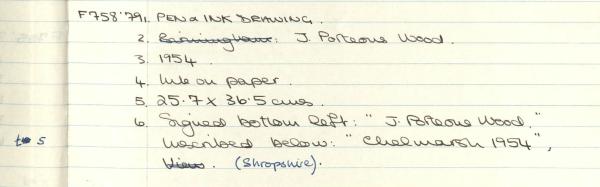 F758'79 1. PEN & INK DRAWING.
2. Birmingham: J. Porteous Wood.
3. 1954.
4. Ink on paper.
5. 25.7 x 36.5 cms.
6. Signed bottom left: "J. Porteous Wood."
to S Inscribed below: "Chelmarsh 1954",
View. (Shropshire).